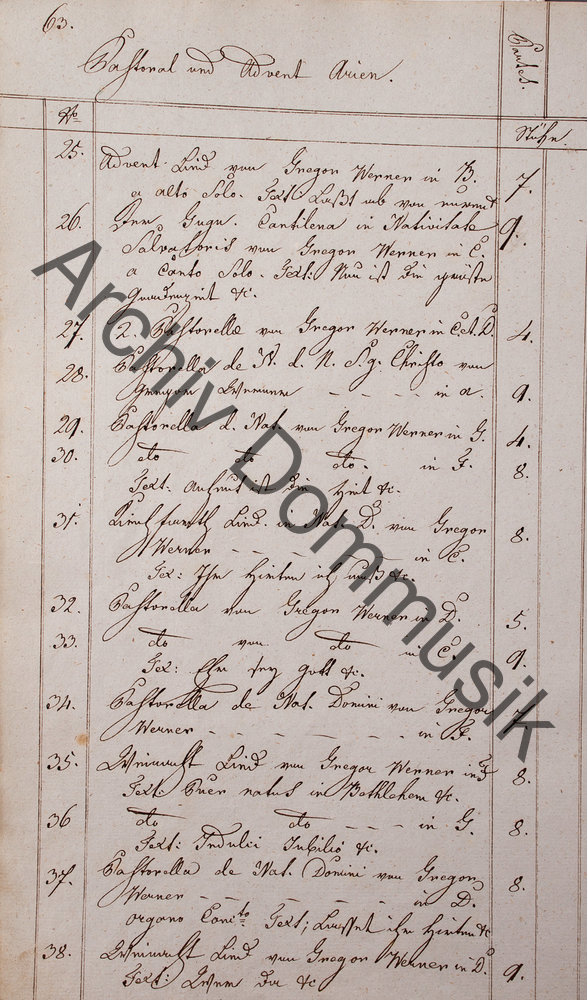 63.
Pastoral und Advent Arien.
Partes.
No
Stüke.
25. Advent Lied von Gregor Werner in B. 7.
a alto Solo. Text. Laßt ab von
26. Cantilena in Nativitate 9.
Salvatoris von Gregor Werner in C.
a Canto Solo. Text: Nun ist die größte
Gnadenzeit &c.
27. 2. Pastorelle von Gregor Werner in C. et. D. 4.
28. Pastorella de N. d. N. J. Christo von
Gregor Werner - - - - in a. 9.
29. Pastorella d. Nat. von Gregor Werner in G. 4.
30. do do do. in F. 8.
Text. ist die Zeit &c.
31. Lied. in Nat. D. von Gregor 8.
Werner - - - - - - in C.
Tex: Ihr Hirten ich muß &c.
32. Pastorella von Gregor Werner in D. 5.
33. do von do in C. 9.
Tex: Ehr sey Gott &c.
34. Pastorella de Nat. Domini von Gregor 7
Werner - - - - - - in F.
35. Weinacht Lied von Gregor Werner in F 8.
Text. Puer natus in Bethlehem &c.
36 do do - - - in G. 8.
Text: Indulci Jubilo &c.
37. Pastorella de Nat. Domini von Gregor 8.
Werner - - - - - - in D.
organo Conc.to Text; Lasset ihr Hirten &c
38. Weinacht Lied von Gregor Werner in D. 9.
Text: Wem da &c
Archiv Dommusik